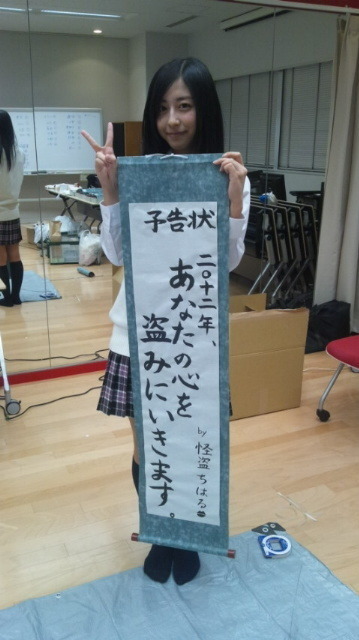 予告状
二〇十二年、
あなたの心を
盗みにいきます。
by 怪盗 ちはる